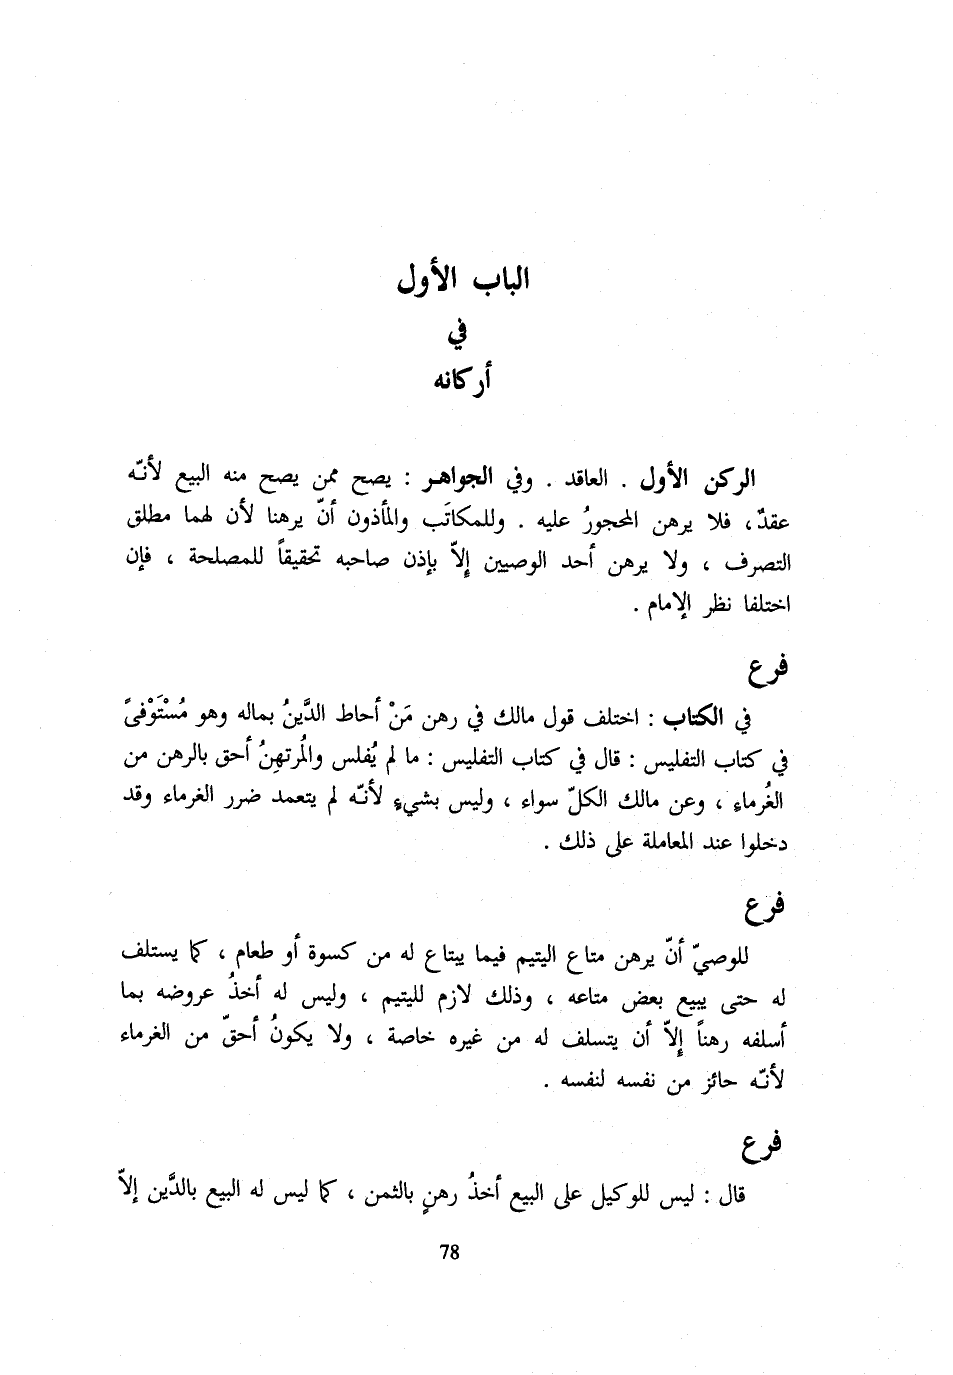 الباب الأول
في
أركانه
الركن الأول . العاقد . وفي الجواهر : يصح ممن يصح منه البيع لأنّه
عقدٌ، فلا يرهن المحجورُ عليه . وللمكاتَب والمأذون أنّ يرهنا لأن لهما مطلق
التصرف ، ولا يرهن أحد الوصيين إلاّ بإذن صاحبه تحقيقاً للمصلحة ، فإن
اختلفا نظر الإمام .
فرع
في الكتاب : اختلف قول مالك في رهن مَنْ أحاط الدَّينُ بماله وهو مُسْتَوْفىً
في كتاب التفليس : قال في كتاب التفليس : ما لم يُفلس والمُرتهِنُ أحق بالرهن من
الغُرماءِ ، وعن مالك الكلّ سواء ، وليس بشيءٍ لأنّه لم يتعمد ضرر الغرماء وقد
دخلوا عند المعاملة على ذلك .
فرع
للوصيّ أنّ يرهن متاع اليتيم فيما يبتاع له من كسوة أو طعام ، كما يستلف
له حتى يبيع بعض متاعه ، وذلك لازم لليتيم ، وليس له أخذُ عروضه بما
أسلفه رهناً إلاّ أن يتسلف له من غيره خاصة ، ولا يكونُ أحقّ من الغرماء
لأنّه حائز من نفسه لنفسه .
فرع
قال : ليس للوكيل على البيع أخذُ رهنٍ بالثمن ، كما ليس له البيع بالدَّين إلاّ
78